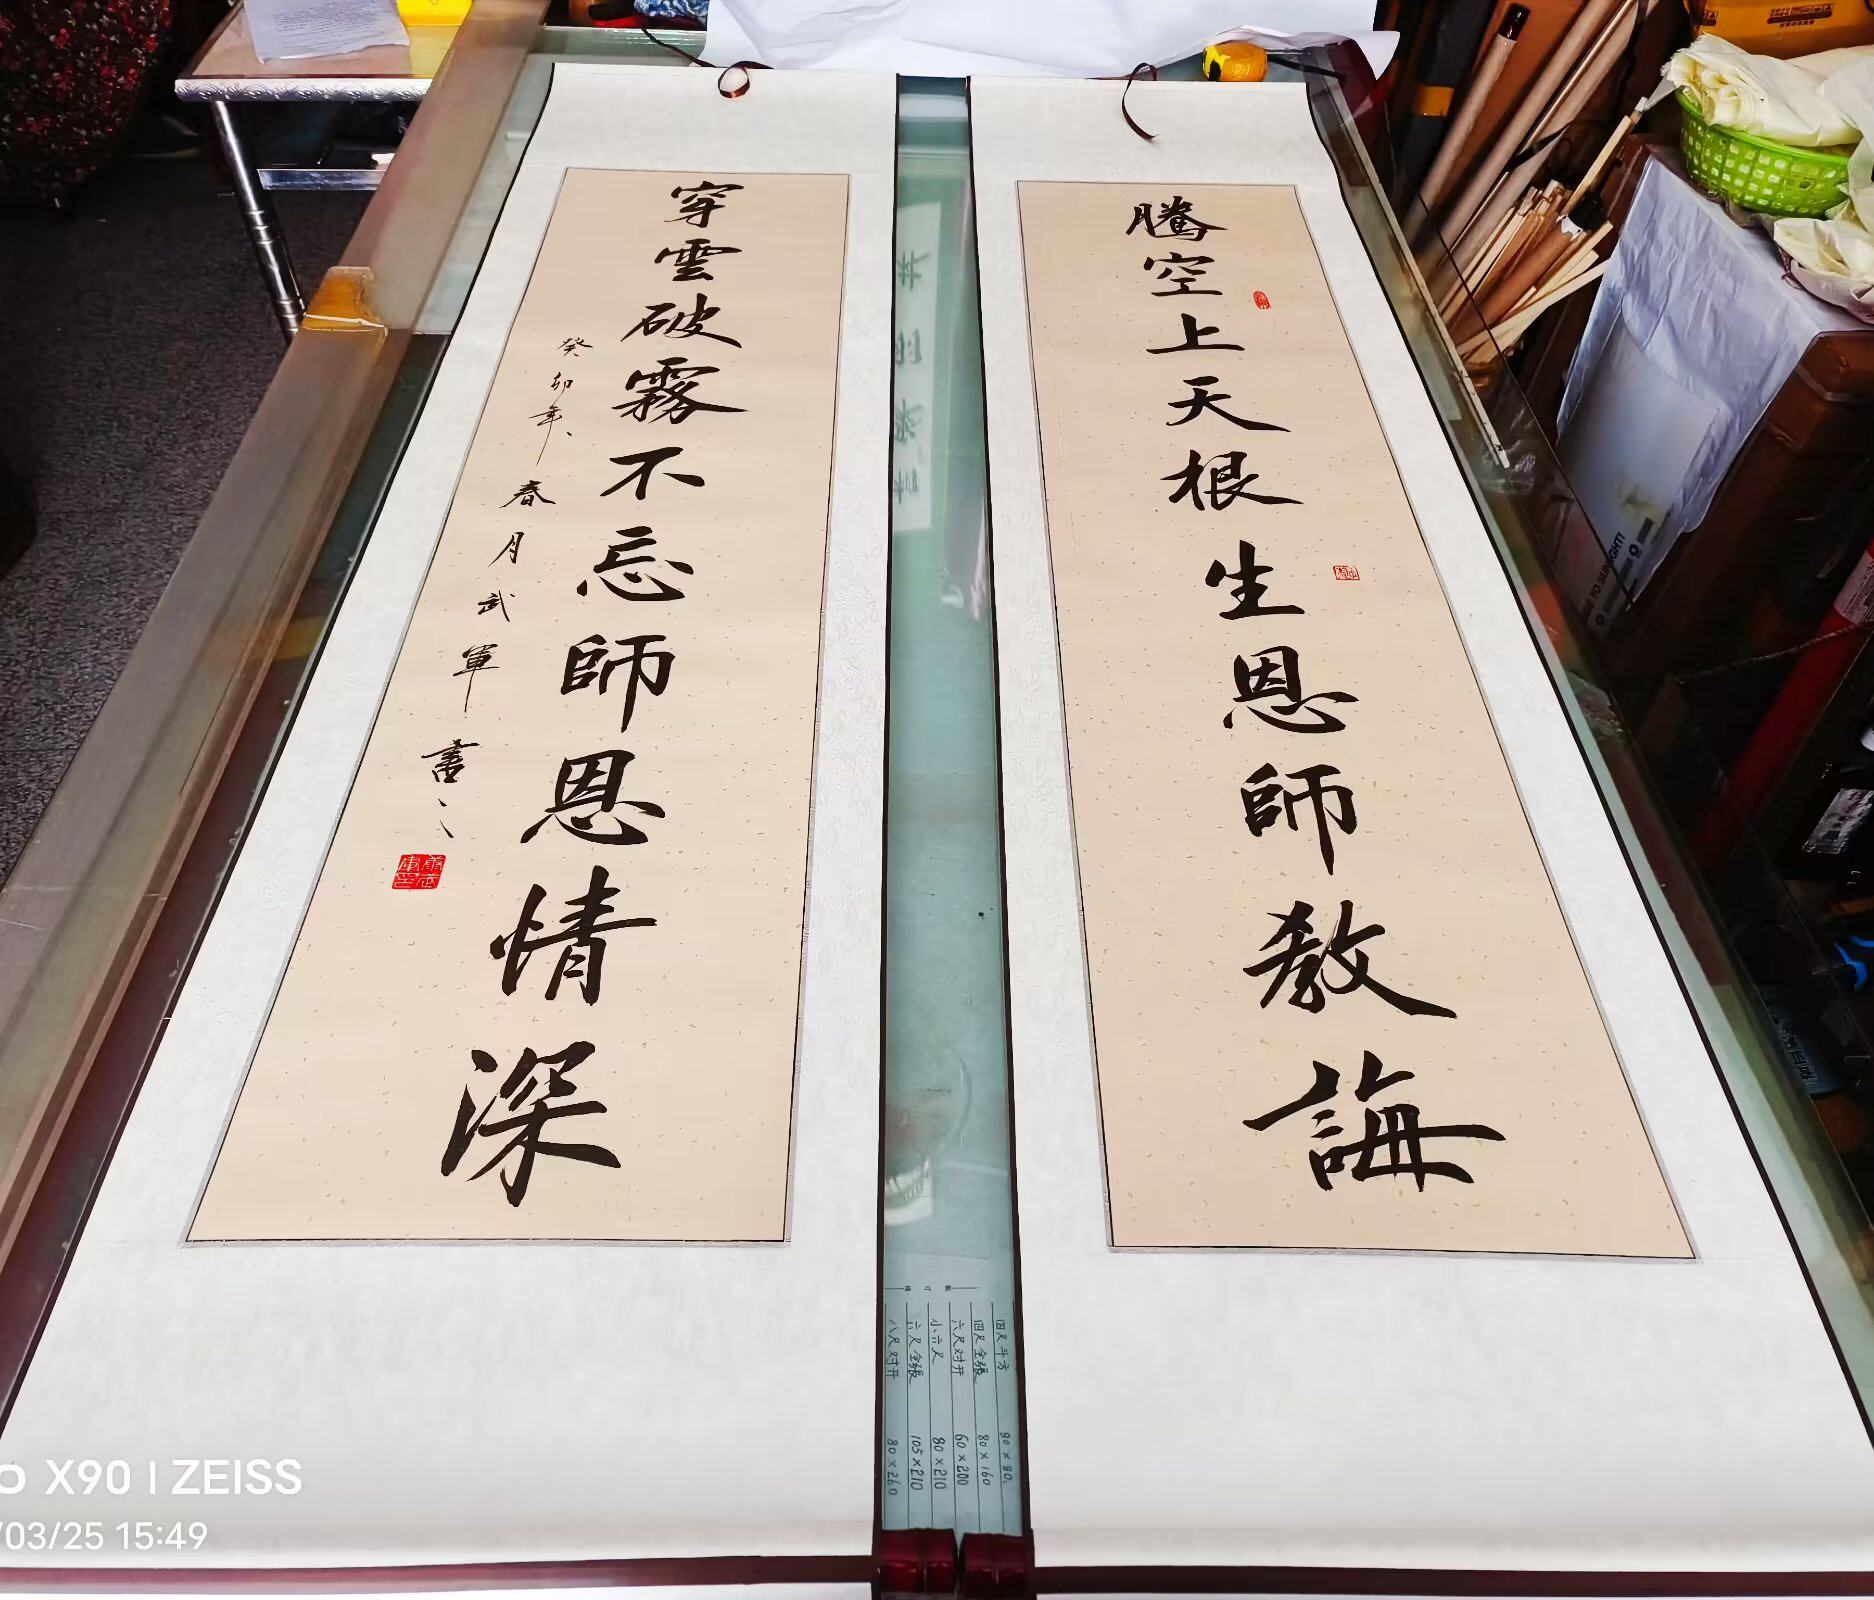 騰空上天根生恩師教誨
穿雲破霧不忘師恩情深
癸卯年春月武軍書
四尺斗方 80×80
四尺全張 80×160
六尺对开 60×200
小六尺 80×210
六尺全張 105×210
八尺对开 80×260
X90 | ZEISS
/03/25 15:49